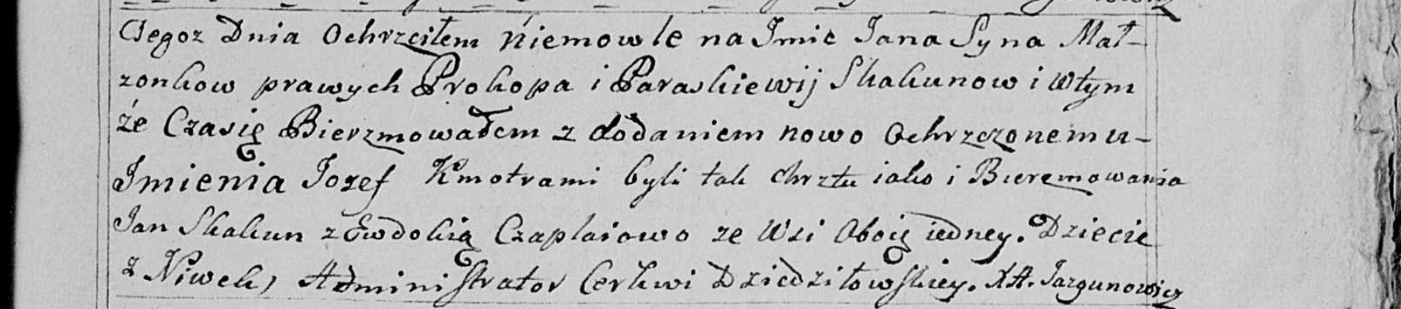 Tegoż Dnia Ochrzciłem Niemowle na Imie Jana Syna Mał-
zonkow prawych Prokopa i Paraskiewij Skakunow i Wtym
że Czasię Bierzmowałem z dodaniem nowo Ochrzczonemu-
Imienia Jozef Kmotrami byli tak chrztu iako i Bierzmowania
Jan Skakun z Ewdokią Czaplaiowo ze Wsi Oboię iedney. Dziecie
z Niwek, Administrator Cerkwi Dziedziłowskiey. XA. Jazgunowicz